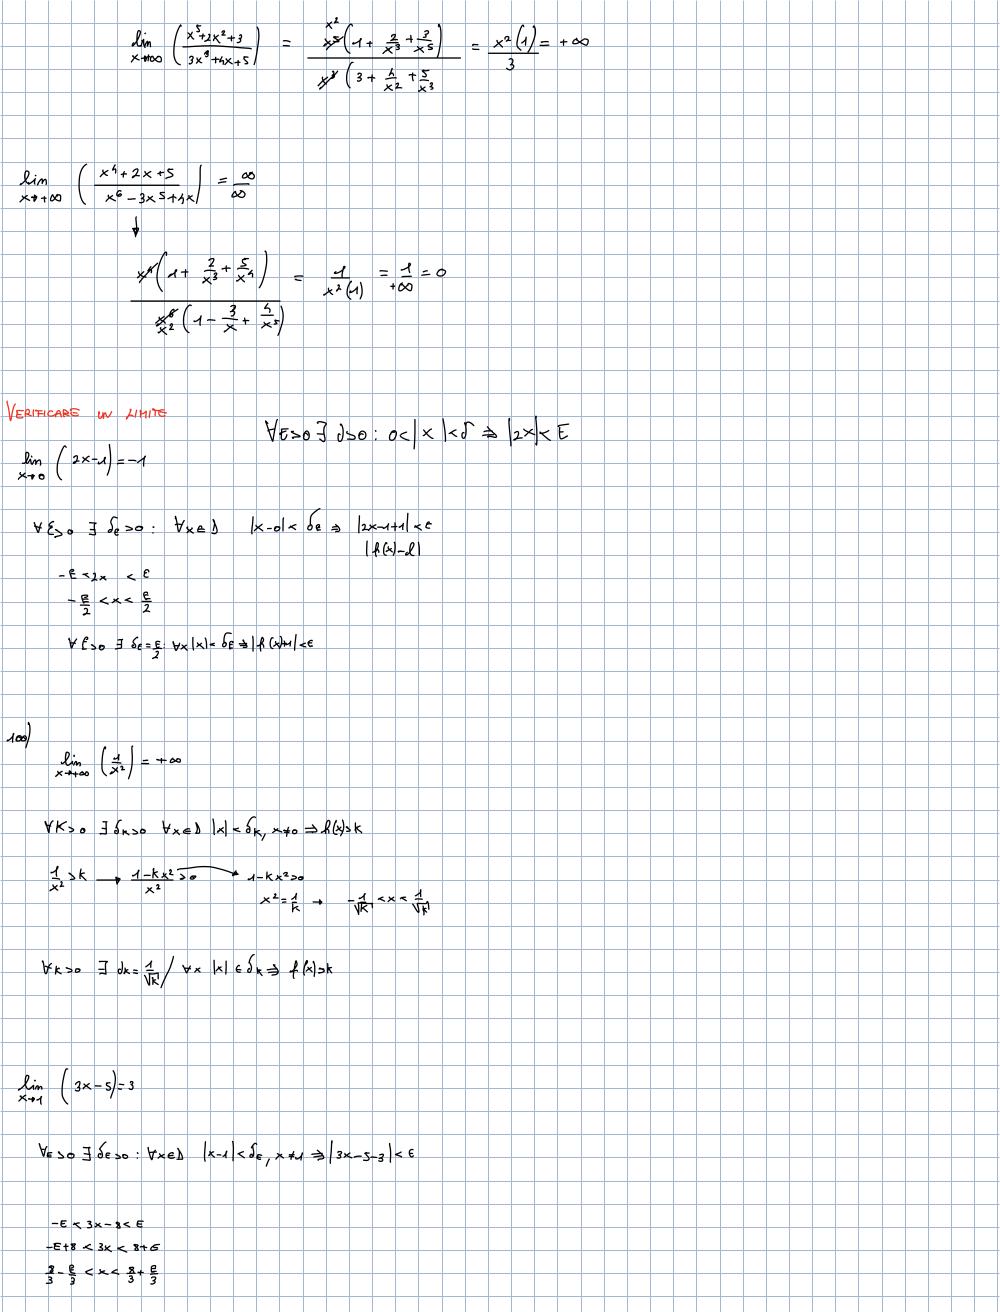 lim x→+∞ ( (x⁵+2x²+3)/(3x³+4x+5) ) = x⁵x²(1 + 2/x³ + 3/x⁵) / x³(3 + 4/x² + 5/x³ = x²(1)/3 = +∞
lim x→+∞ ( (x⁴+2x+5)/(x⁶−3x⁵+4x) ) = ∞/∞
↓
x⁴(1 + 2/x³ + 5/x⁴) / x⁶x²(1 − 3/x + 4/x⁵) = 1/(x²(1)) = 1/+∞ = 0
VERIFICARE UN LIMITE
∀E>0 ∃ d>0 : 0<|x|<δ ⇒ |2x|<E
lim x→0 (2x−1) = −1
∀ε>0 ∃ δε>0 : ∀x∈D |x−0| < δε ⇒ |2x−1+1| < ε
|f(x)−l|
−ε <2x < ε
−ε/2 < x < ε/2
∀ε>0 ∃ δε=ε/2: ∀x |x|< δε ⇒ |f(x)+1| <ε
100)
lim x→+∞ (1/x²) = +∞
∀K>0 ∃ δK>0 ∀x∈D |x| < δK, x≠0 ⇒ f(x)>k
1/x² >k → (1−kx²)/x² >0 → 1−kx²>0
x²=1/k → −1/√k <x< 1/√k
∀k>0 ∃ dk=1/√k / ∀x |x| ∈ δk ⇒ f(x)>k
lim x→1 (3x−5)=3
∀ε>0 ∃ δε>0 : ∀x∈D |x−1|<δε, x≠1 ⇒ |3x−5−3|< ε
−ε < 3x−8< ε
−ε+8 < 3x < 8+ε
8/3 − ε/3 < x < 8/3 + ε/3